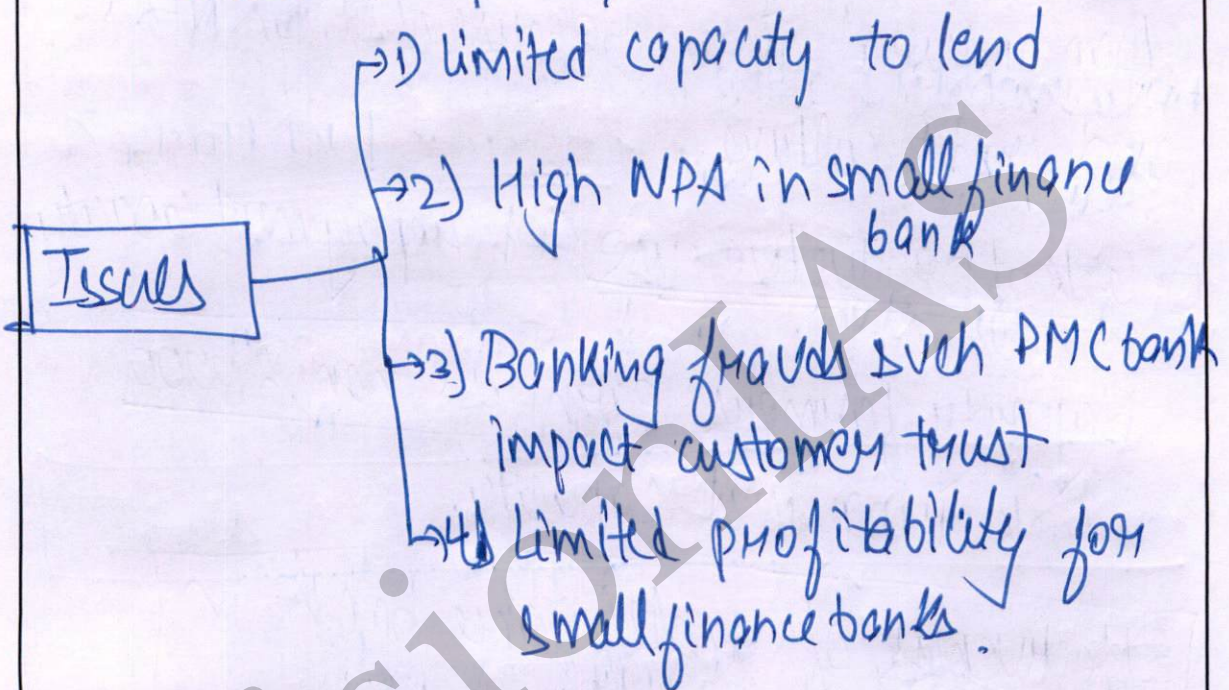 1) limited capacity to lend
2) High NPA in small finance
bank
Issues
3) Banking frauds such PMC bank
impact customer trust
4) limited profitability for
small finance banks.
sionIAS